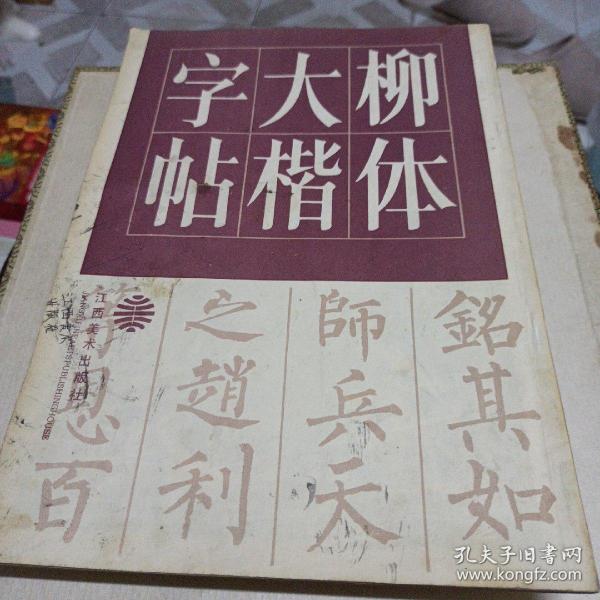 柳体
大楷
字帖
銘其如
師兵天
之趙利
恩百
江西美术出版社
PUBLISHING HOUSE
孔夫子旧书网
www.kongfz.com